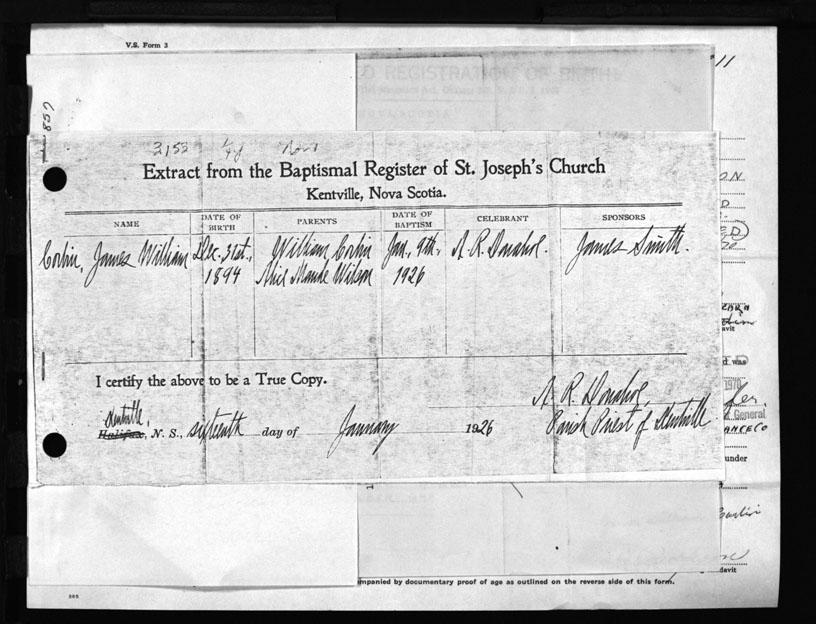 V.S. Form 3
11
857
3153
D REGISTRATION OF BIRTH
NOVA SCOTIA
Extract from the Baptismal Register of St. Joseph's Church
Kentville, Nova Scotia.
NAME DATE OF BIRTH PARENTS DATE OF BAPTISM CELEBRANT SPONSORS
Corbin, James William Dec. 31st., William Corbin Jan. 9th., A. R. Donahoe. James Smith.
1894 Maude Wilson 1926
I certify the above to be a True Copy.
A. R. Donahoe,
Kentville,
Halifax, N. S., sixteenth day of January 1926 Parish Priest of Kentville
ON
D
ED
avit
d was
1970
General
ANCE CO
under
davit
mpanied by documentary proof of age as outlined on the reverse side of this form.